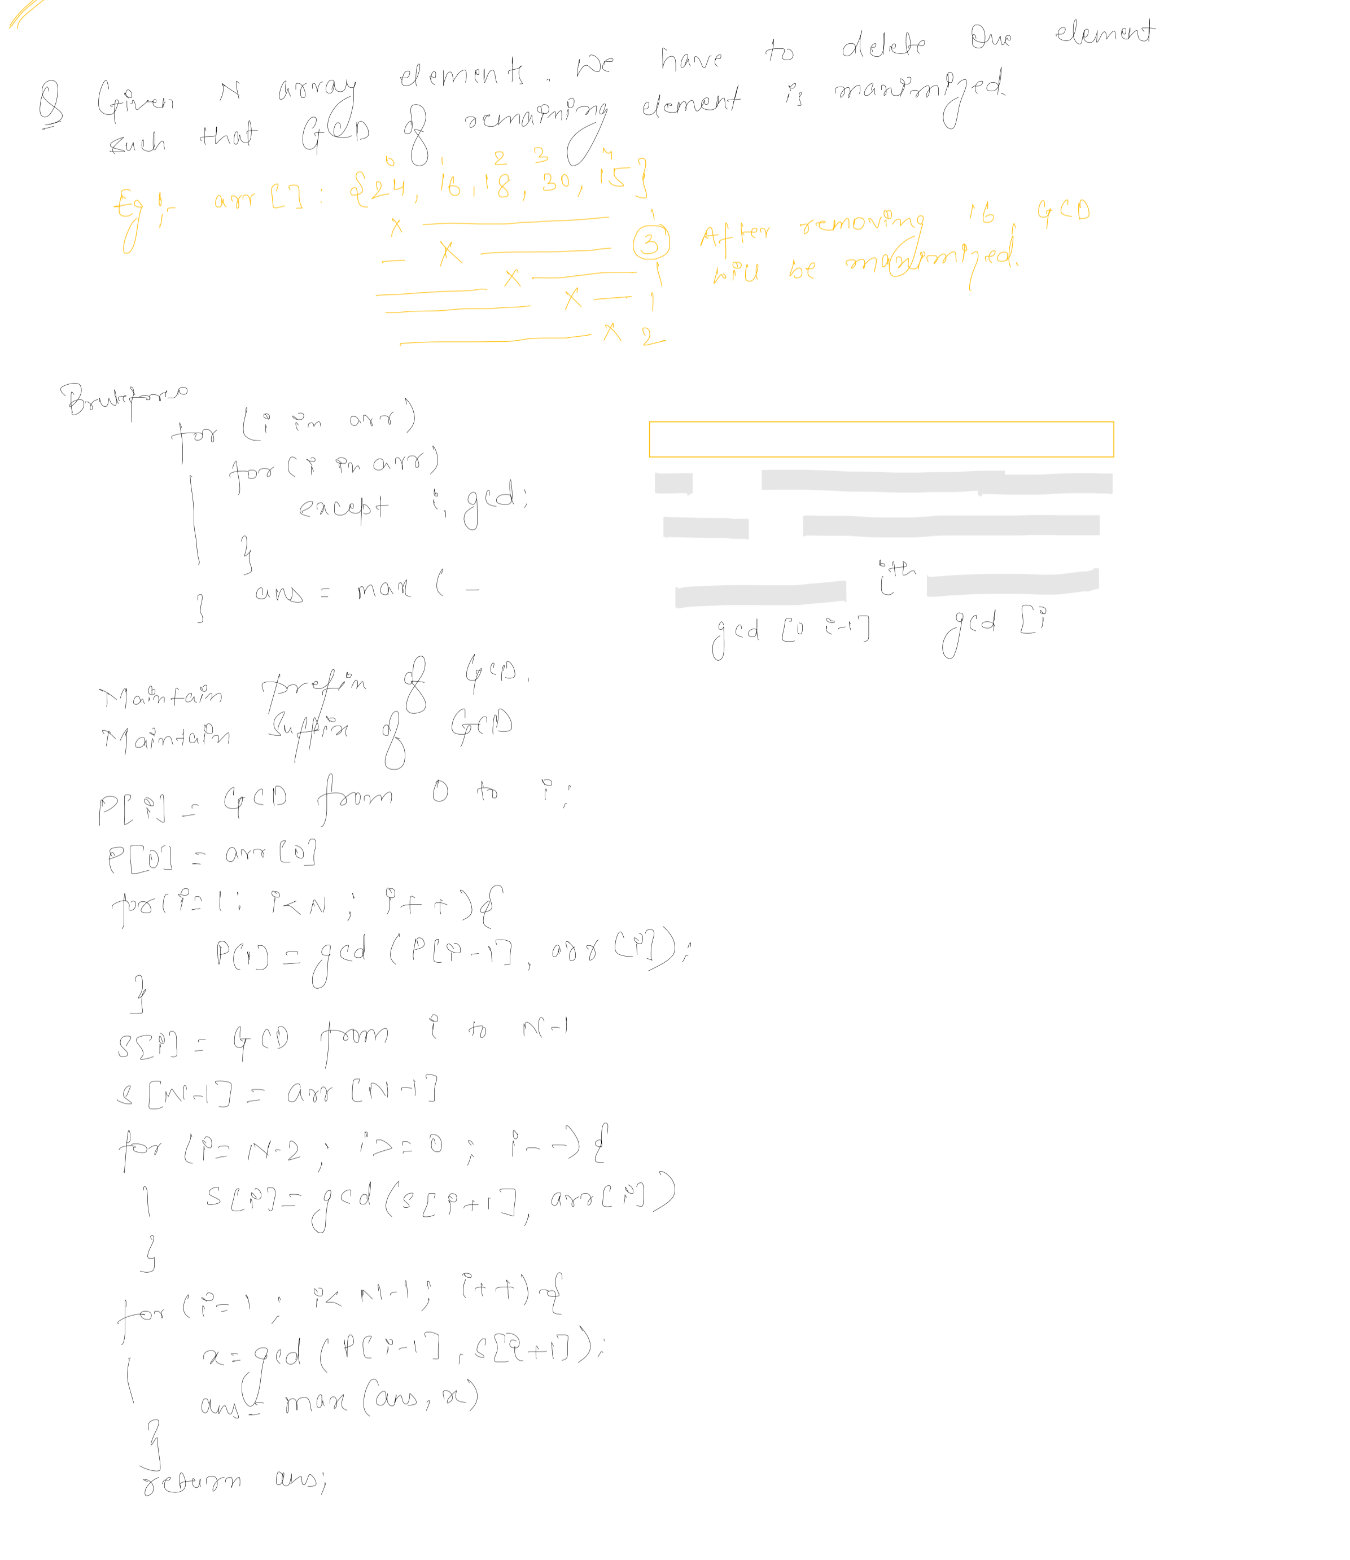 Q Given N array elements. We have to delete One element
such that GCD of remaining element is maximized.
0 1 2 3 4
Eg :- arr [] : {24, 16, 18, 30, 15}
x 1
x 3 After removing 16, GCD
will be maximized.
x 1
x 1
x 2
Bruteforce
for (i in arr)
for (i in arr)
except i, gcd;
}
ans = max ( -
}
ith
gcd [0 i-1] gcd [i
Maintain prefix of GCD.
Maintain Suffix of GCD
P[i] = GCD from 0 to i;
P[0] = arr [0]
for (i=1; i<N; i++) {
P(i) = gcd (P[i-1], arr [i]);
}
S[i] = GCD from i to N-1
S [N-1] = arr [N-1]
for (i= N-2; i>=0; i--) {
S[i] = gcd (S[i+1], arr[i])
}
for (i=1; i< N-1; i++) {
x = gcd (P[i-1], S[i+1]);
ans = max (ans, x)
}
return ans;